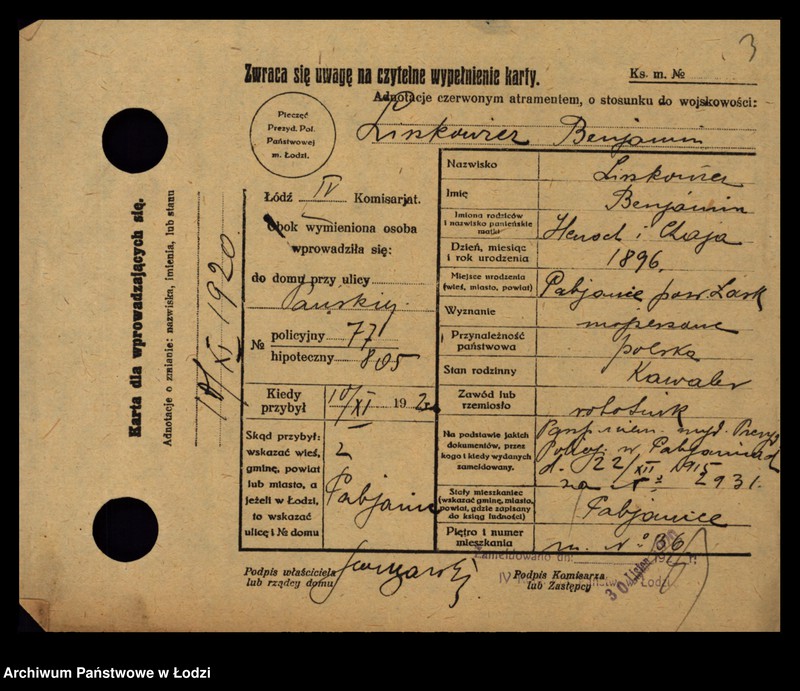 3
Zwraca się uwagę na czytelne wypełnienie karty.
Ks. m. №
Adnotacje czerwonym atramentem, o stosunku do wojskowości:
Pieczęć
Prezyd. Pol.
Państwowej
m. Łodzi.
Liszkowicz Benjamin
Łódź IV Komisarjat.
Obok wymieniona osoba
wprowadziła się:
do domu przy ulicy
Pańskiej
№ policyjny 77
hipoteczny 805
Kiedy przybył 10/XI 1920
Skąd przybył:
wskazać wieś,
gminę, powiat
lub miasto, a
jeżeli w Łodzi,
to wskazać
ulicę i № domu
z
Pabjanic
Nazwisko Liszkowicz
Imię Benjamin
Imiona rodziców
i nazwisko panieńskie
matki
Hersch i Chaja
Dzień, miesiąc
i rok urodzenia
1896.
Miejsce urodzenia
(wieś, miasto, powiat)
Pabjanice pow. Łask
Wyznanie mojżeszowe
Przynależność
państwowa
polska
Stan rodzinny Kawaler
Zawód lub
rzemiosło
robotnik
Na podstawie jakich
dokumentów, przez
kogo i kiedy wydanych
zameldowany.
Pasp. niem. wyd. Prezyd.
Policji w Pabjanicach
d. 22/XII 1915
za № 2931.
Stały mieszkaniec
(wskazać gminę, miasto,
powiat, gdzie zapisany
do ksiąg ludności)
Pabjanice
Piętro i numer
mieszkania
m. № 36
Zameldowano dn. 192 r.
30 Listop. 1920
IV Łodzi
Podpis właściciela
lub rządcy domu
Podpis Komisarza
lub Zastępcy
Karta dla wprowadzających się.
Adnotacje o zmianie: nazwiska, imienia, lub stanu
10/XI 1920
Archiwum Państwowe w Łodzi